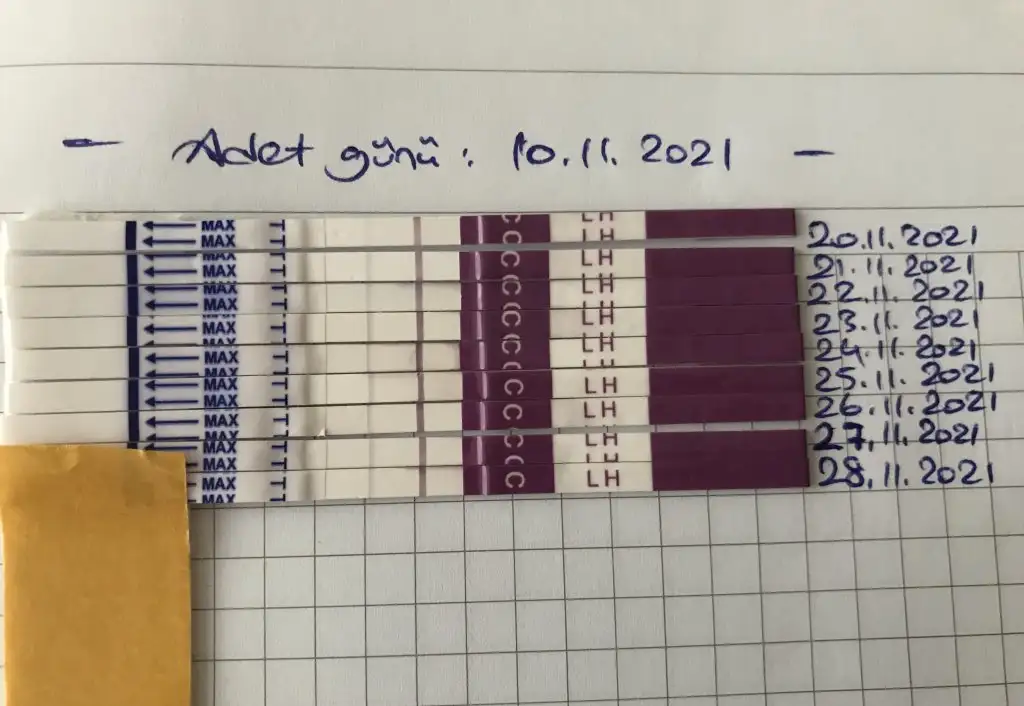 - Adet günü: 10.11.2021 -
MAX C LH 20.11.2021
MAX C LH 21.11.2021
MAX C LH 22.11.2021
MAX C LH 23.11.2021
MAX C LH 24.11.2021
MAX C LH 25.11.2021
MAX C LH 26.11.2021
MAX C LH 27.11.2021
MAX C LH 28.11.2021